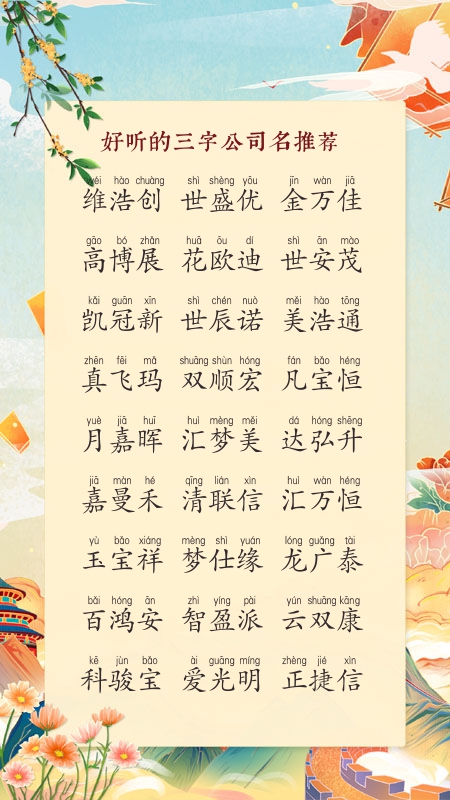 好听的三字公司名推荐
wéi hào chuàng shì shèng yōu jīn wàn jiā
维浩创 世盛优 金万佳
gāo bó zhǎn huā ōu dí shì ān mào
高博展 花欧迪 世安茂
kǎi guān xīn shì chén nuò měi hào tōng
凯冠新 世辰诺 美浩通
zhēn fēi mǎ shuāng shùn hóng fán bǎo héng
真飞玛 双顺宏 凡宝恒
yuè jiā huī huì mèng měi dá hóng shēng
月嘉晖 汇梦美 达弘升
jiā màn hé qīng lián xìn huì wàn héng
嘉曼禾 清联信 汇万恒
yù bǎo xiáng mèng shì yuán lóng guǎng tài
玉宝祥 梦仕缘 龙广泰
bǎi hóng ān zhì yíng pài yún shuāng kāng
百鸿安 智盈派 云双康
kē jùn bǎo ài guāng míng zhèng jié xìn
科骏宝 爱光明 正捷信